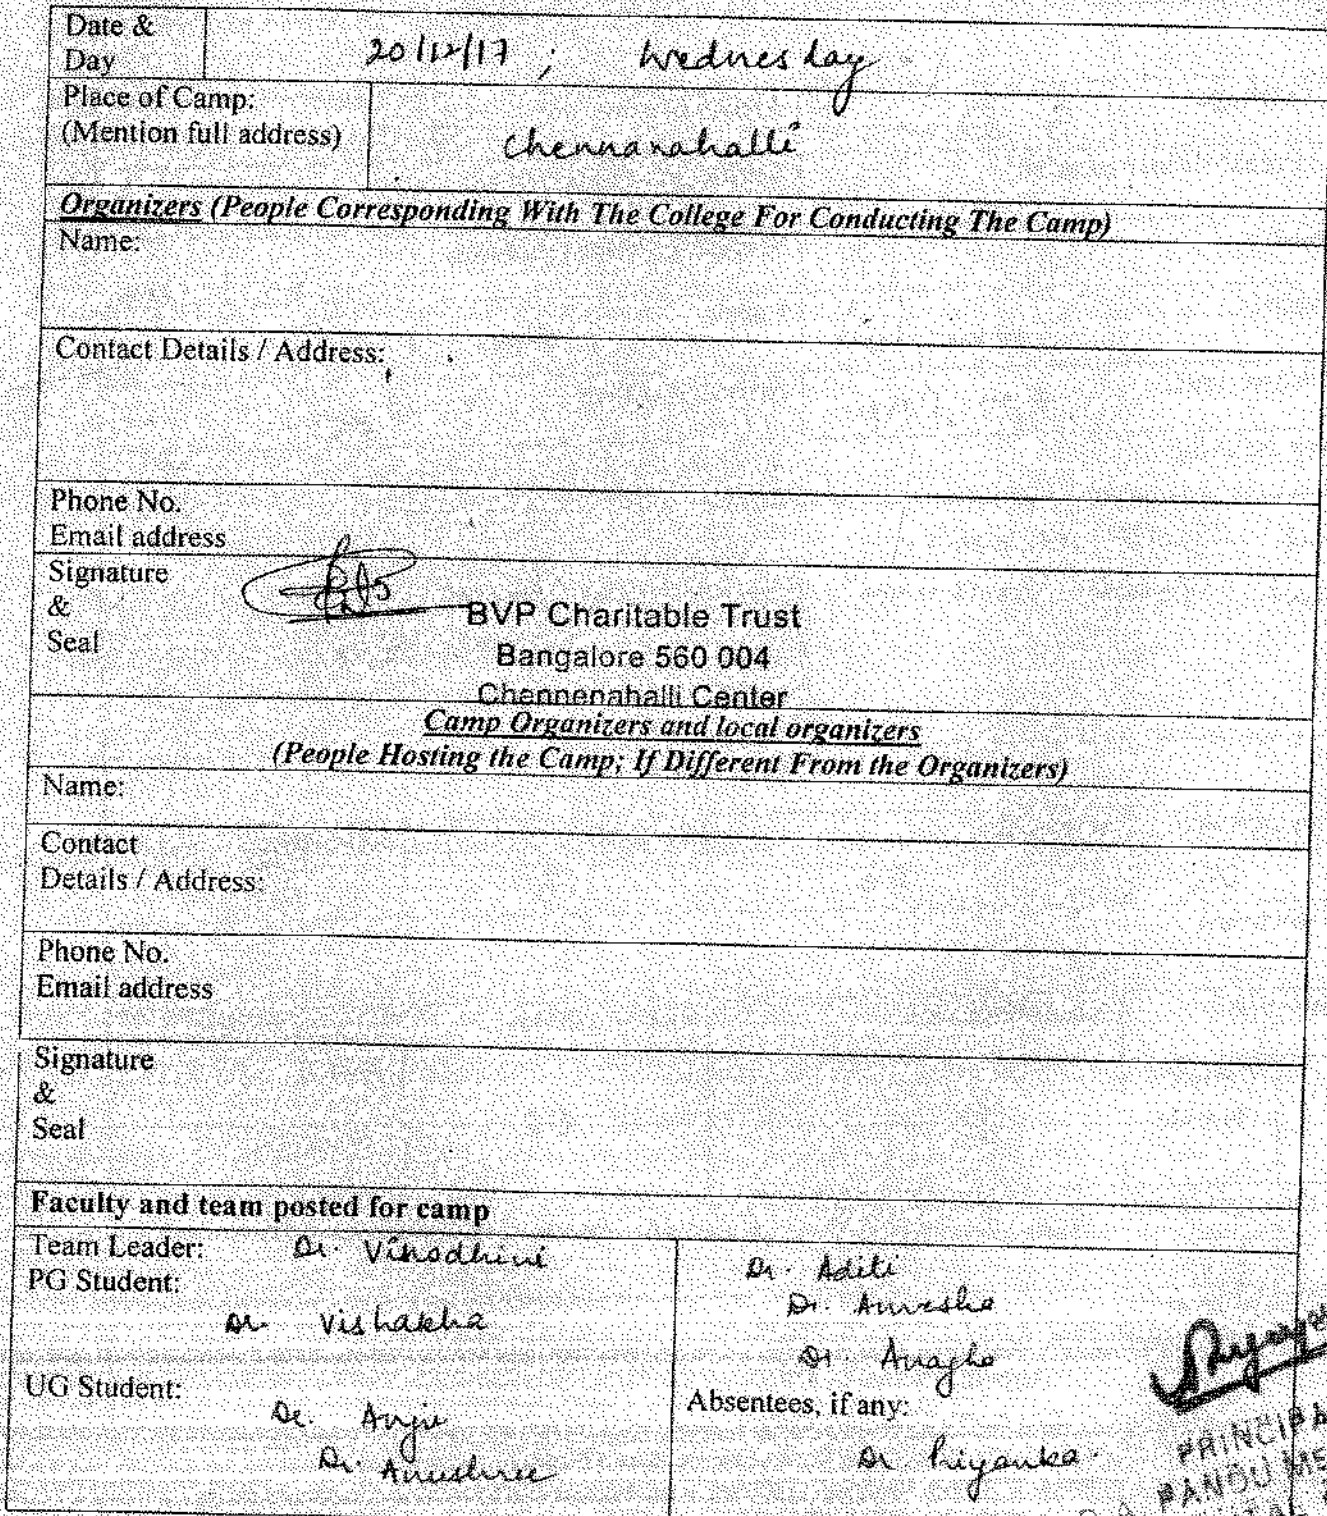 Date &
Day
20/12/17 ; Wednesday
Place of Camp:
(Mention full address)
Chennanahalli
Organizers (People Corresponding With The College For Conducting The Camp)
Name:
Contact Details / Address:
Phone No.
Email address
Signature
&
Seal
BVP Charitable Trust
Bangalore 560 004
Chennenahalli Center
Camp Organizers and local organizers
(People Hosting the Camp; If Different From the Organizers)
Name:
Contact
Details / Address:
Phone No.
Email address
Signature
&
Seal
Faculty and team posted for camp
Team Leader: Dr. Vinodhini
PG Student:
Dr. Vishakha
UG Student:
Dr. Anju
Dr. Anushree
Dr. Aditi
Dr. Anvesha
Dr. Anagha
Absentees, if any:
Dr Priyanka.
PRINCIPA
PANDU ME